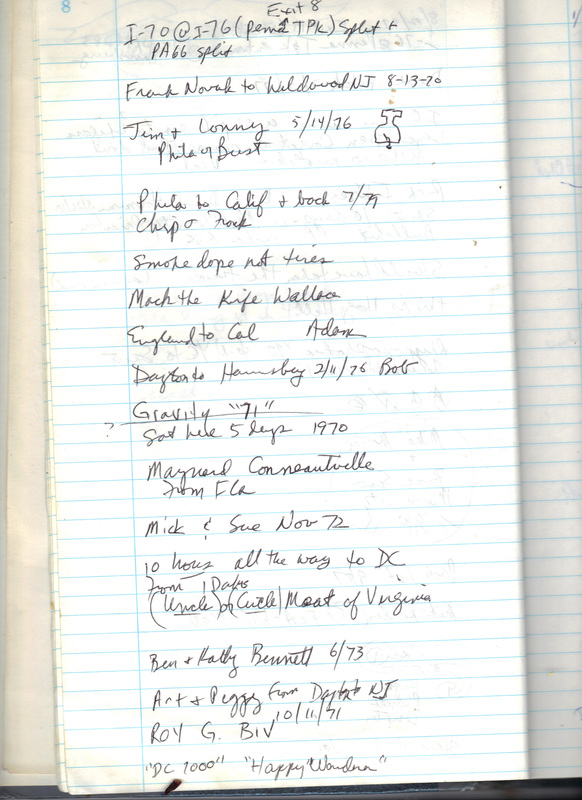 8
Exit 8
I-70 @ I-76 (Penna TPK) Split +
PA66 split
Frank Novak to Wildwood NJ 8-13-70
Jim + Lonny 5/14/76
Phila or Bust
Phila to Calif + back 7/79
Chip + Frock
Smoke dope not tires
Mack the Kife Wallace
England to Cal Adam
Dayton to Harrisburg 2/11/76 Bob
Gravity "71"
? Sat here 5 days 1970
Maynard Conneautville
From Fla
Mick & Sue Nov 72
10 hours all the way to DC
from
(Uncle) or (Circle) Meat of Virginia
Ben + Kathy Bennett 6/73
Art + Peggy from Dayton to NJ
10/11/71
ROY G. BIV
"DC 7000" "Happy Wanderer"